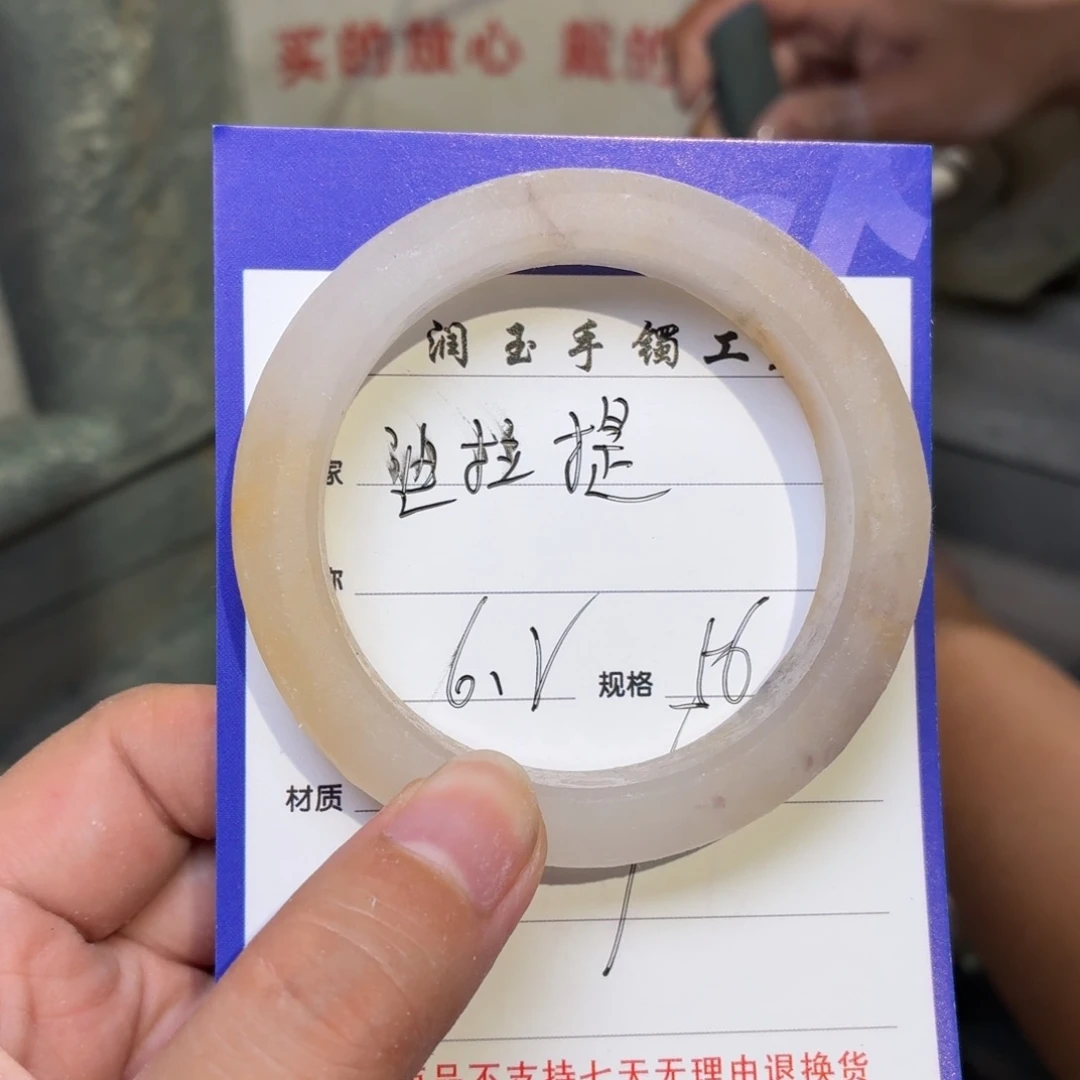 买的放心 戴的
润玉手镯工
家 迪拉提
尔
6.1 规格 16
材质
品不支持七天无理由退换货